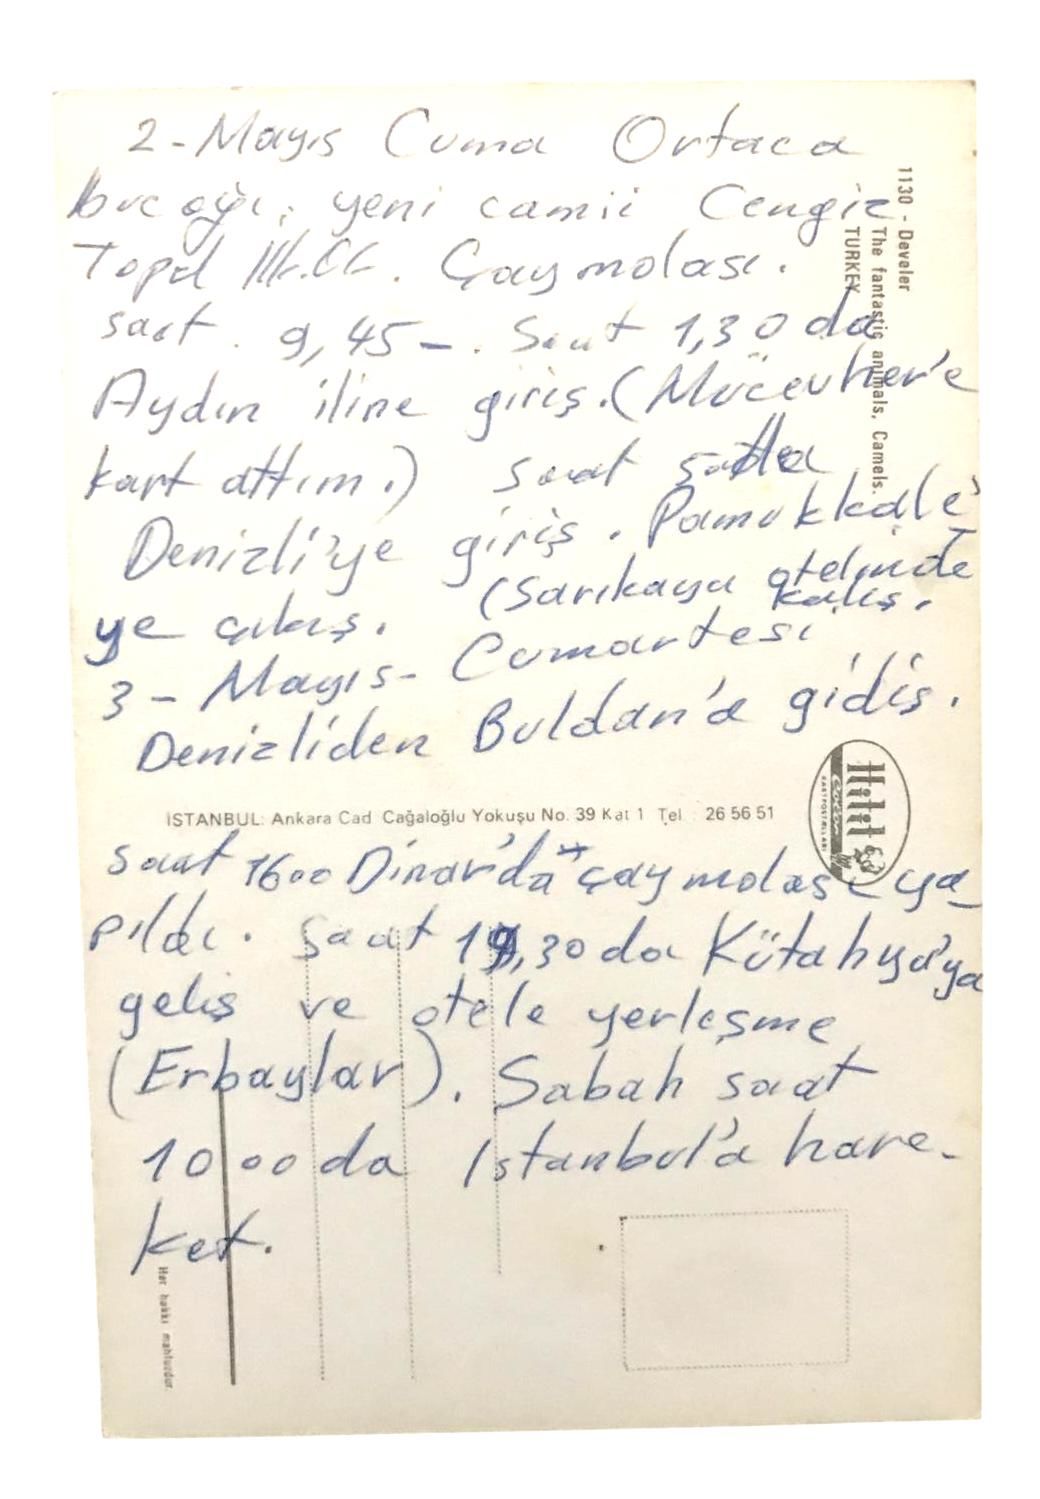 2-Mayıs Cuma Ortaca
bucağı, yeni camii Cengiz
Topel Çay molası.
saat 9,45-. Saat 1,30 da
Aydın iline giriş. (Mücevher'e
kart attım.) saat
Denizli'ye giriş. Pamukkale'
ye çıkış. (Sarıkaya otelinde
kalış.
3-Mayıs- Cumartesi
Denizliden Buldan'a gidiş.
İSTANBUL: Ankara Cad Cağaloğlu Yokuşu No. 39 Kat 1 Tel 26 56 51
saat 1600 Dinar'da çay molası ya
pıldı. Saat 19,30 da Kütahya'ya
geliş ve otele yerleşme
(Erbaylar). Sabah saat
1000 da Istanbul'a hare-
ket.
1130 - Develer
The fantastic animals, Camels.
TURKEY
Hitit
KARTPOSTALLARI
Her hakkı mahfuzdur.